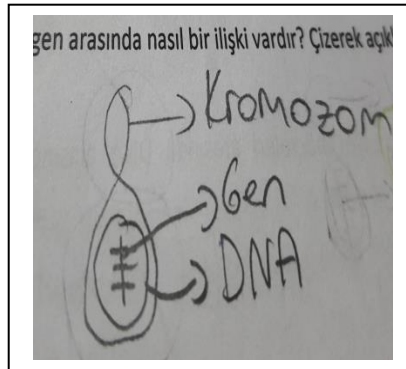 gen arasında nasıl bir ilişki vardır? Çizerek açık
Kromozom
Gen
DNA